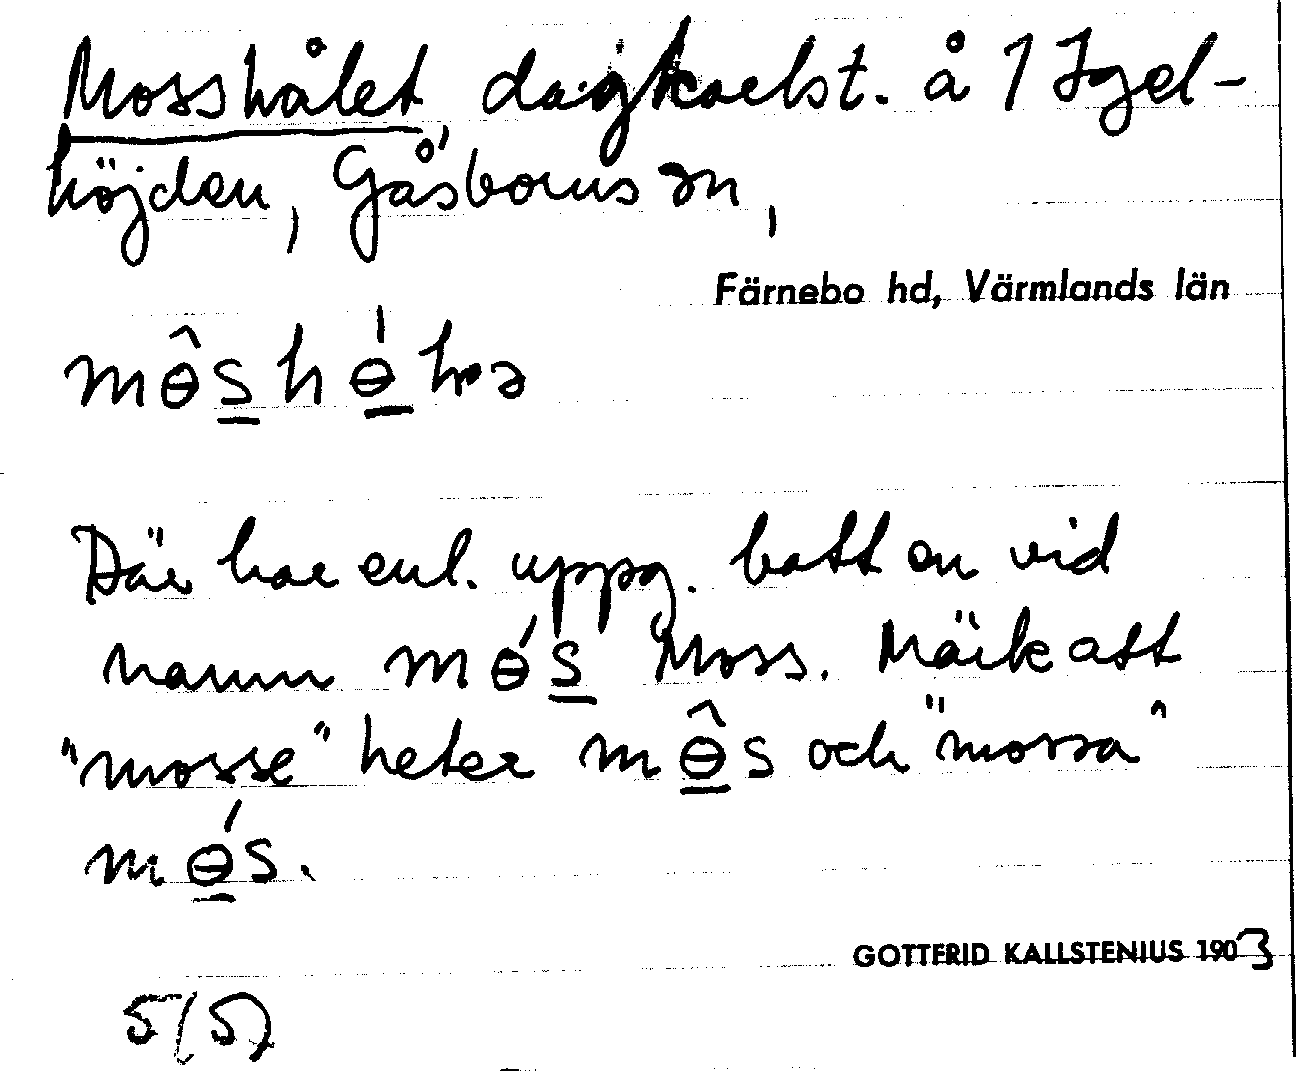 Mosshålet dagkarlst. å 1 Igel-
höjden, Gåsborns sn,
Färnebo hd, Värmlands län
Där har enl. uppg. bott en vid
namn mɵ́s Moss. Märk att
"mosse" heter mɵ̂s och "mossa"
mɵ́s.
GOTTFRID KALLSTENIUS 1903
5(5)